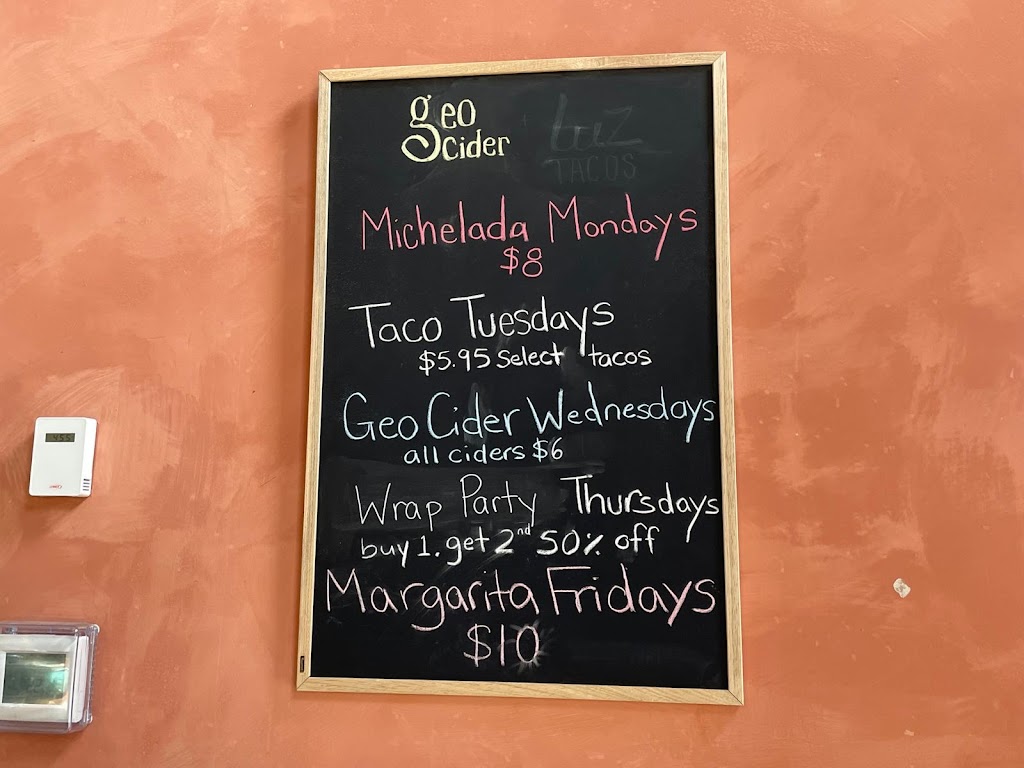 geo
cider
Luz
TACOS
Michelada Mondays
$8
Taco Tuesdays
$5.95 select tacos
Geo Cider Wednesdays
all ciders $6
Wrap Party Thursdays
buy 1. get 2nd 50% off
Margarita Fridays
$10